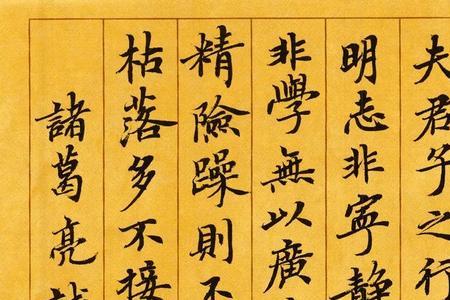 夫君子之行
明志非寧静
非學無以廣
精險躁則不
枯落多不接
諸葛亮誡